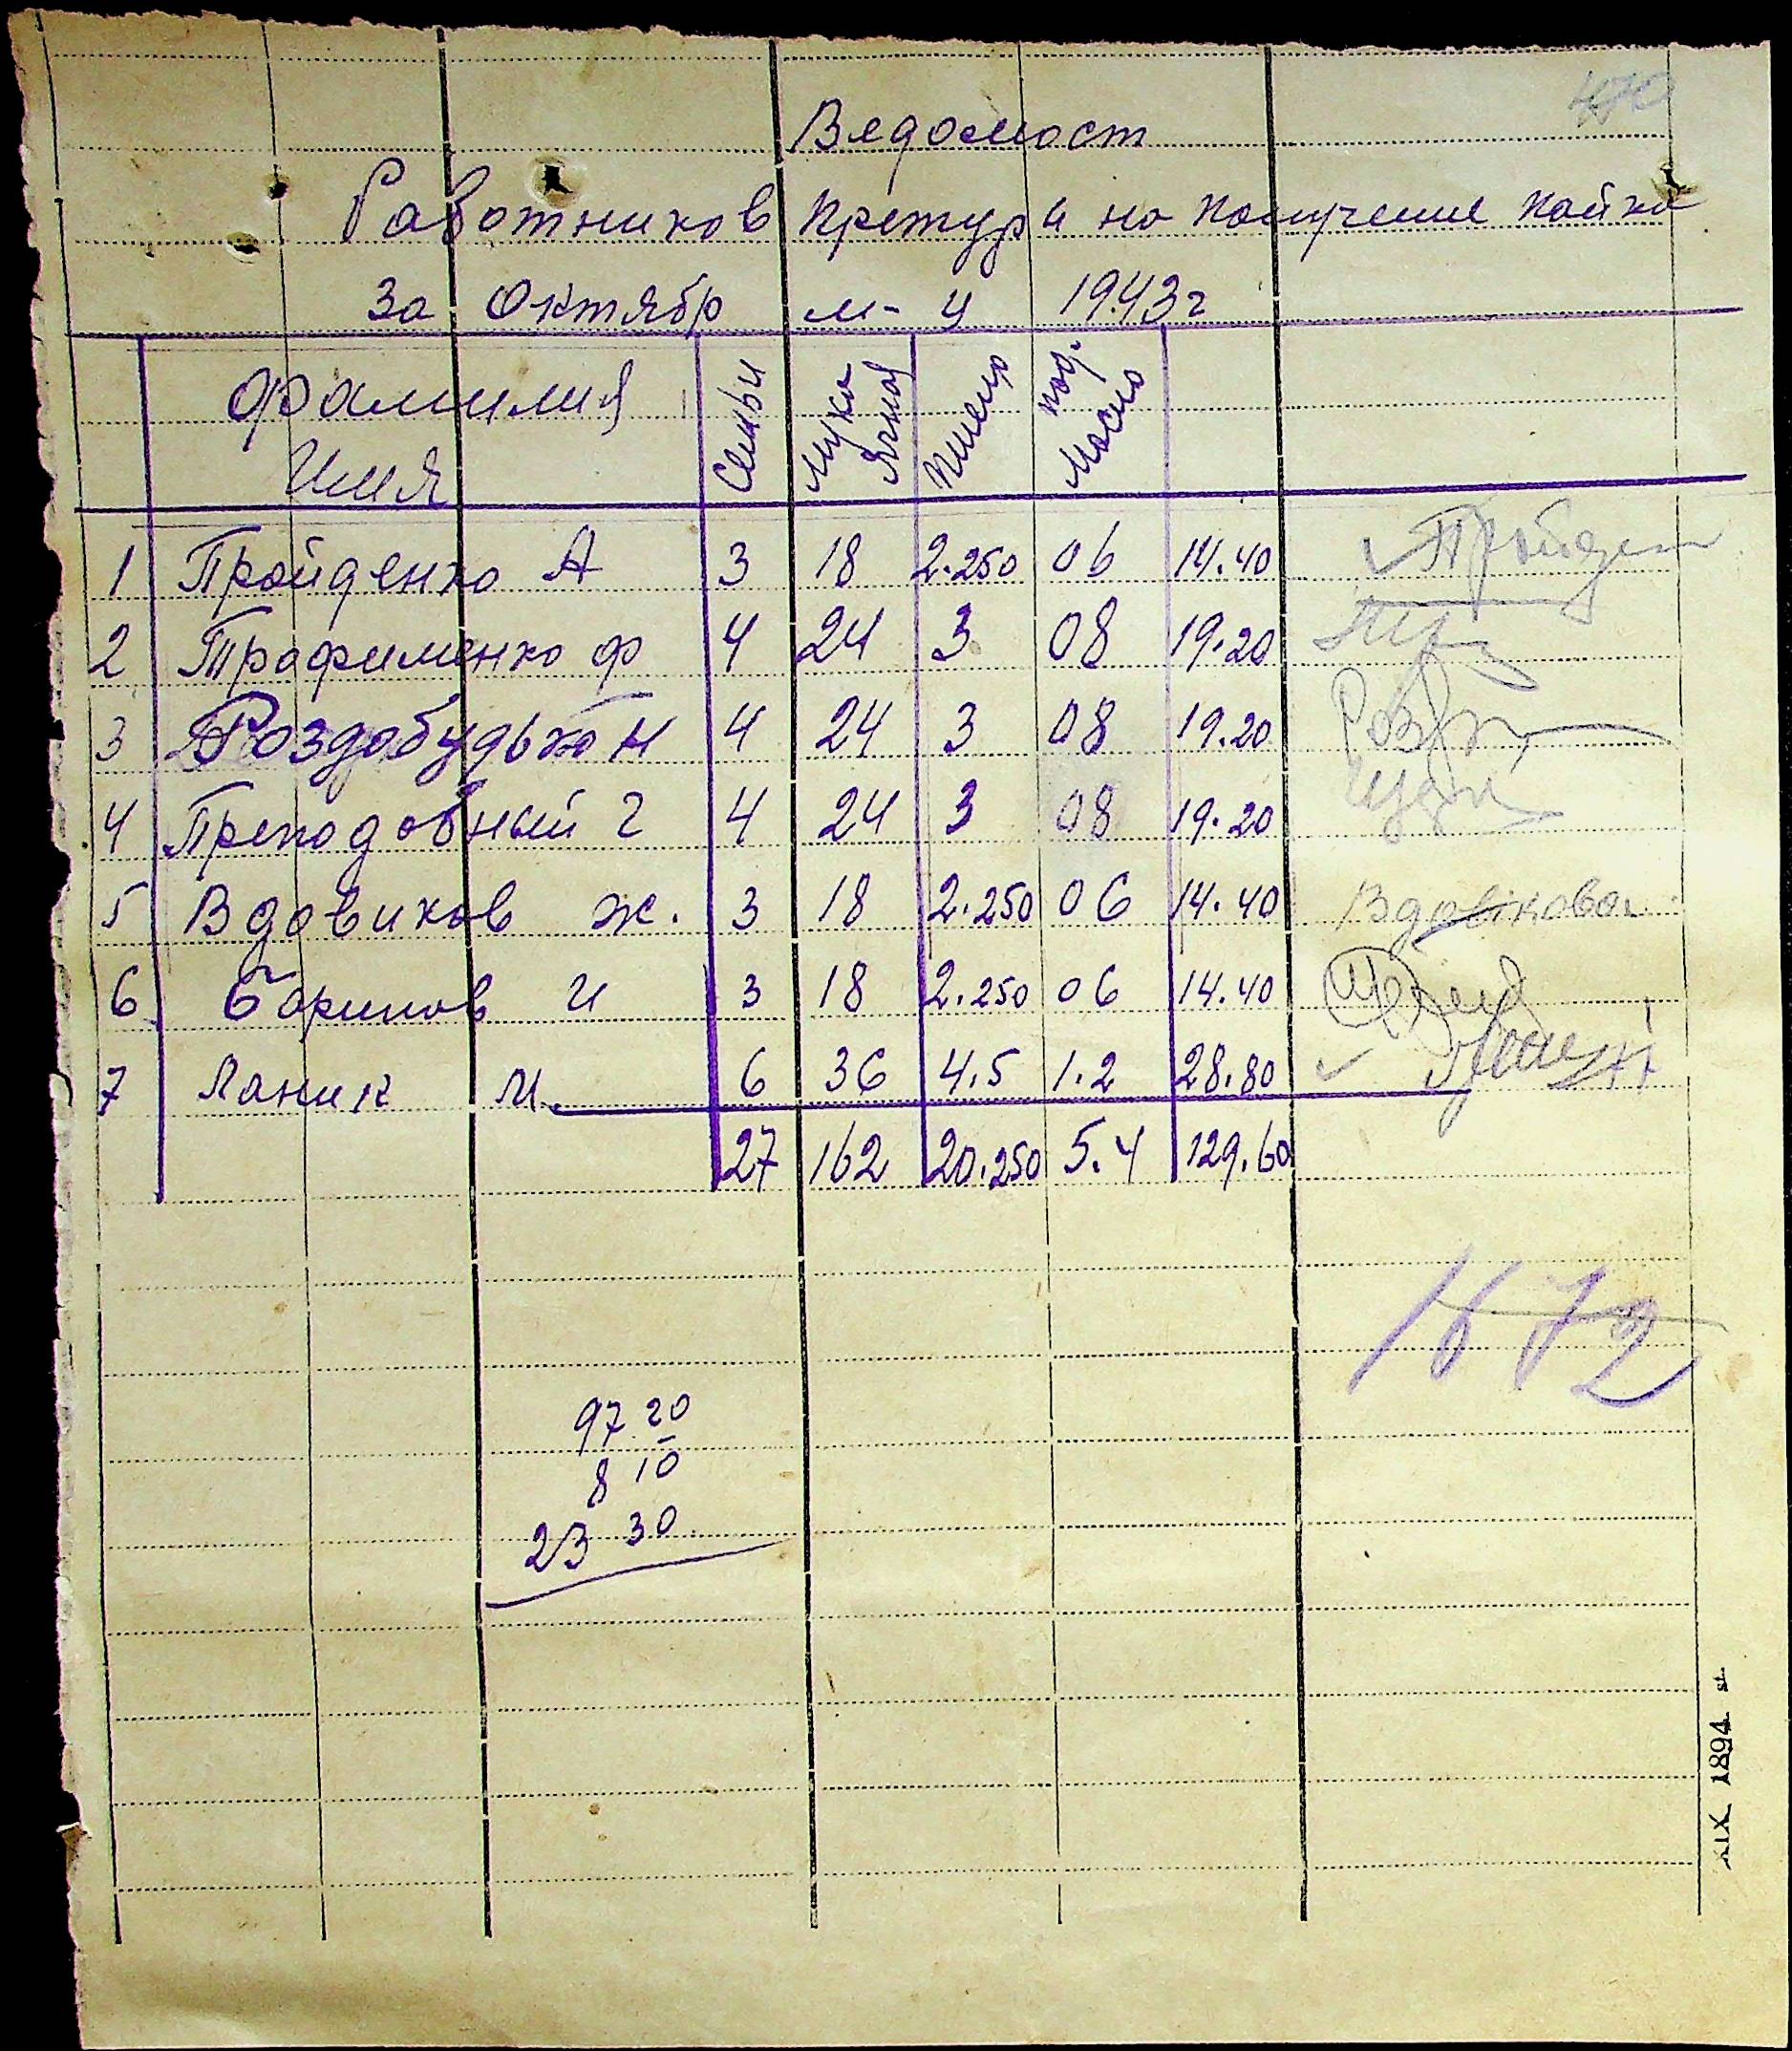 470
Вядомост
Работников претури на получение пайка
За Октябр м-ц 1943 г
Фамилия Имя Семьи Мука ячная Пшено под. Масло
1 Пройденко А 3 18 2.250 06 14.40 Пройден
2 Трофименко Ф 4 24 3 08 19.20
3 Роздобудько Н 4 24 3 08 19.20
4 Преподобный Г 4 24 3 08 19.20
5 Вдовиков Ж. 3 18 2.250 06 14.40 Вдовікова
6 Баринов И 3 18 2.250 06 14.40
7 Ланик М. 6 36 4.5 1.2 28.80
27 162 20.250 5.4 129.60
1672
97 20
8 10
23 30
XIX 1894 st